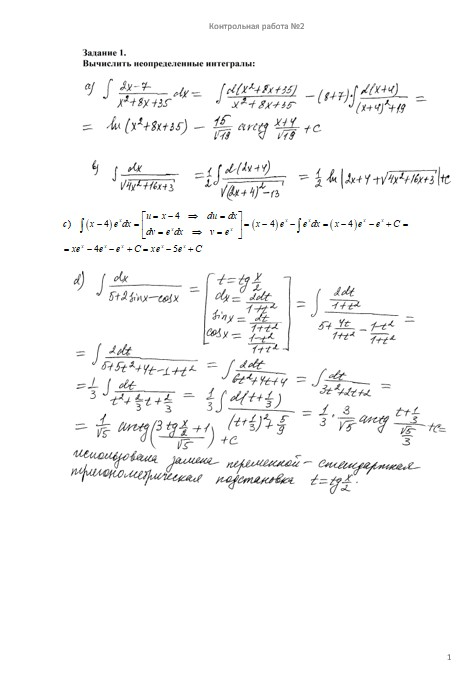 Контрольная работа №2
Задание 1.
Вычислить неопределенные интегралы:
a) ∫ (2x-7)/(x²+8x+35) dx = ∫ d(x²+8x+35)/(x²+8x+35) - (8+7)·∫ d(x+4)/((x+4)²+19) =
= ln(x²+8x+35) - 15/√19 arctg (x+4)/√19 + C
b) ∫ dx/√(4x²+16x+3) = 1/2 ∫ d(2x+4)/√((2x+4)²-13) = 1/2 ln|2x+4+√(4x²+16x+3)|+C
c) ∫(x-4)eˣdx = [u = x-4 ⇒ du = dx; dv = eˣdx ⇒ v = eˣ] = (x-4)eˣ - ∫eˣdx = (x-4)eˣ - eˣ + C =
= xeˣ - 4eˣ - eˣ + C = xeˣ - 5eˣ + C
d) ∫ dx/(5+2sinx-cosx) = [t = tg x/2; dx = 2dt/(1+t²); sinx = 2t/(1+t²); cosx = (1-t²)/(1+t²)] = ∫ (2dt/(1+t²))/(5+4t/(1+t²)-(1-t²)/(1+t²)) =
= ∫ 2dt/(5+5t²+4t-1+t²) = ∫ 2dt/(6t²+4t+4) = ∫ dt/(3t²+2t+2) =
= 1/3 ∫ dt/(t²+2/3 t+2/3) = 1/3 ∫ d(t+1/3)/((t+1/3)²+5/9) = 1/3 · 3/√5 arctg (t+1/3)/(√5/3) + C =
= 1/√5 arctg((3tg x/2 + 1)/√5) + C
использована замена переменной - стандартная
тригонометрическая подстановка t = tg x/2.
1